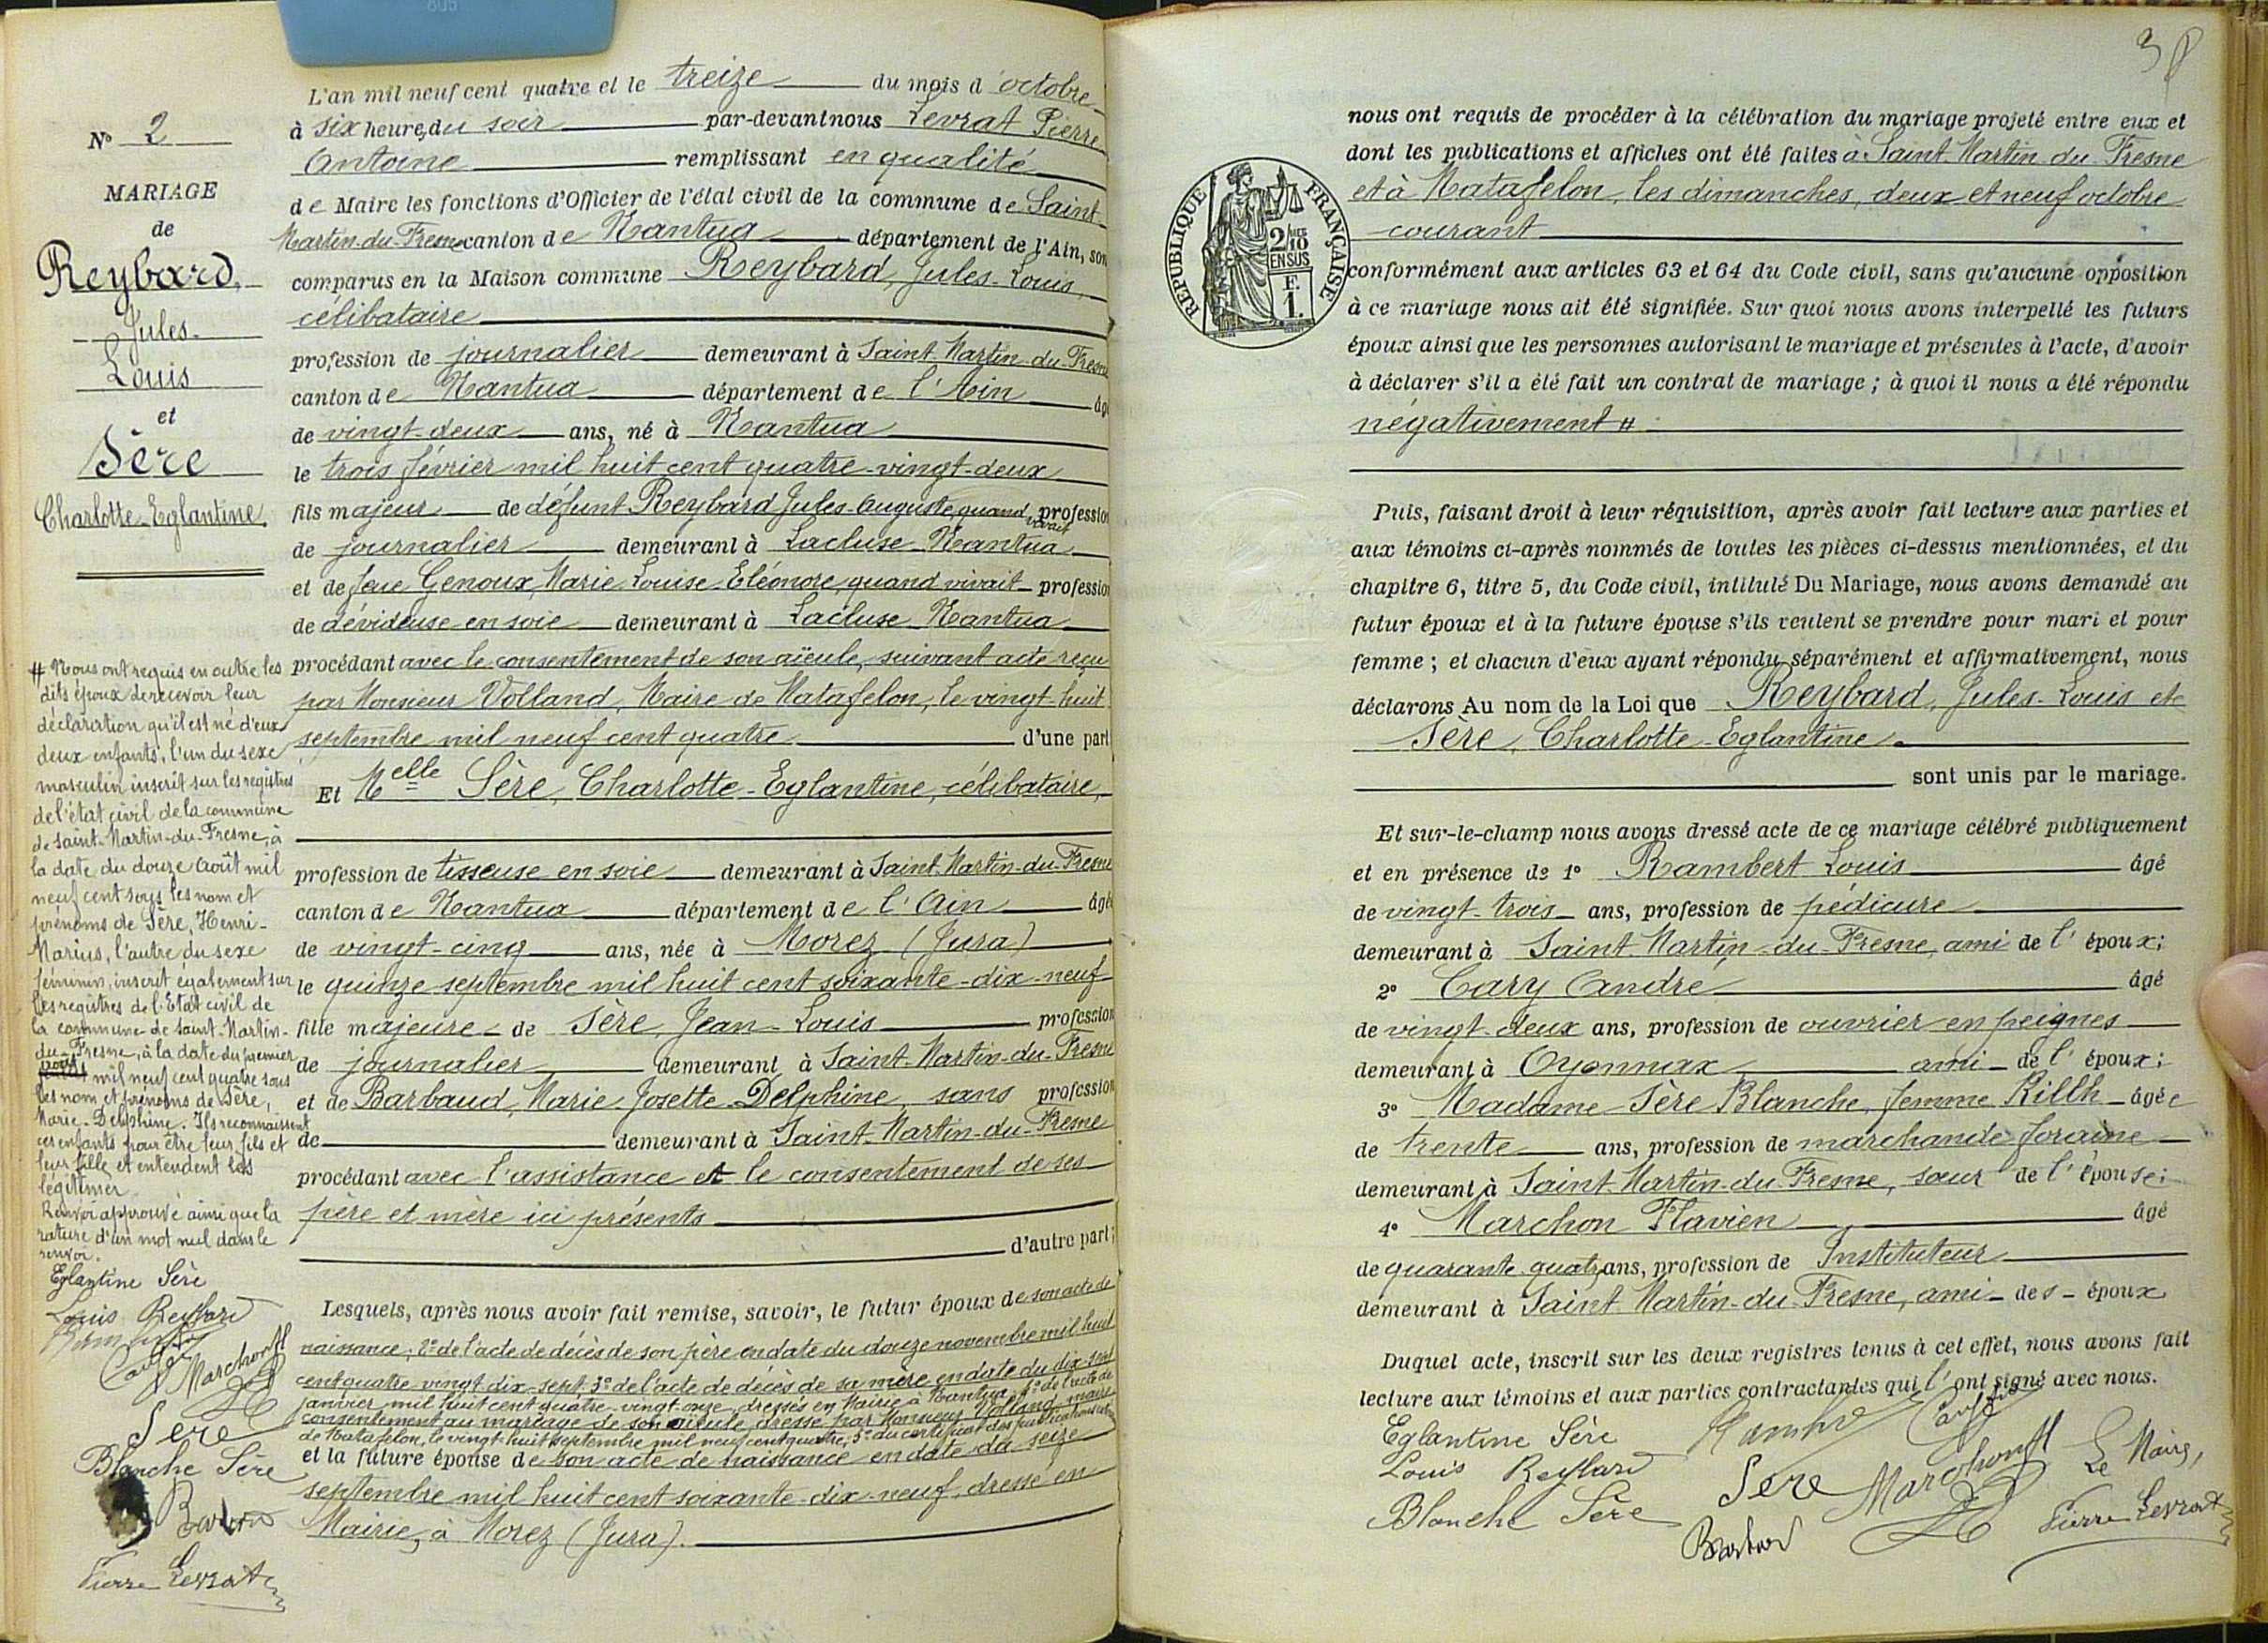 805
N° 2
MARIAGE
de
Reybard,
Jules-
Louis
et
Sère
Charlotte-Eglantine.
L'an mil neuf cent quatre et le treize du mois d'octobre
à six heures du soir par-devant nous Levrat Pierre
Antoine remplissant en qualité
de Maire les fonctions d'Officier de l'état civil de la commune de Saint-
Martin-du-Fresne canton de Nantua département de l'Ain, son
comparus en la Maison commune Reybard, Jules-Louis,
célibataire
profession de journalier demeurant à Saint-Martin-du-Fresne
canton de Nantua département de l'Ain âgé
de vingt-deux ans, né à Nantua
le trois février mil huit cent quatre-vingt-deux
fils majeur de défunt Reybard Jules-Auguste quand vivait profession
de journalier demeurant à Lacluse-Nantua
et de feue Genoux, Marie-Louise-Eléonore, quand vivait profession
de dévideuse en soie demeurant à Lacluse-Nantua
procédant avec le consentement de son aïeule, suivant acte reçu
par Monsieur Volland, Maire de Matafelon, le vingt-huit
septembre mil neuf cent quatre d'une part
Et Melle Sère, Charlotte-Eglantine, célibataire,
profession de tisseuse en soie demeurant à Saint-Martin-du-Fresne
canton de Nantua département de l'Ain âgée
de vingt-cinq ans, née à Morez (Jura)
le quinze septembre mil huit cent soixante-dix-neuf
fille majeure de Sère, Jean-Louis profession
de journalier demeurant à Saint-Martin-du-Fresne
et de Barbaud, Marie-Josette-Delphine, sans profession
de demeurant à Saint-Martin-du-Fresne
procédant avec l'assistance et le consentement de ses
père et mère ici présents
d'autre part;
Lesquels, après nous avoir fait remise, savoir, le futur époux de son acte de
naissance; 2° de l'acte de décès de son père en date du douze novembre mil huit
cent quatre-vingt-dix-sept, 3° de l'acte de décès de sa mère en date du dix-sept
janvier mil huit cent quatre-vingt-onze, dressés en Mairie à Nantua, 4° de l'acte de
consentement au mariage de son aïeule dressé par Monsieur Volland, maire
de Matafelon, le vingt-huit septembre mil neuf cent quatre; 5° du certificat des publications
et la future épouse de son acte de naissance en date du seize
septembre mil huit cent soixante-dix-neuf, dressé en
Mairie, à Morez (Jura).
# Nous ont requis en outre les
dits époux de recevoir leur
déclaration qu'il est né d'eux
deux enfants, l'un du sexe
masculin inscrit sur les registres
de l'état civil de la commune
de Saint-Martin-du-Fresne, à
la date du douze août mil
neuf cent sous les nom et
prénoms de Sère, Henri-
Marius, l'autre du sexe
féminin, inscrit également sur
les registres de l'Etat civil de
la commune de Saint-Martin-
du-Fresne, à la date du premier
août mil neuf cent quatre sous
les nom et prénoms de Sère,
Marie-Delphine. Ils reconnaissent
ces enfants pour être leur fils et
leur fille et entendent les
légitimer.
Renvoi approuvé ainsi que la
rature d'un mot nul dans le
renvoi.
Eglantine Sère
Louis Reybard
Marchon ff
Sère
Blanche Sère
Pierre Levrat
REPUBLIQUE FRANÇAISE
2/10 EN SUS
F. 1.
nous ont requis de procéder à la célébration du mariage projeté entre eux et
dont les publications et affiches ont été faites à Saint-Martin-du-Fresne
et à Matafelon, les dimanches, deux et neuf octobre
courant
conformément aux articles 63 et 64 du Code civil, sans qu'aucune opposition
à ce mariage nous ait été signifiée. Sur quoi nous avons interpellé les futurs
époux ainsi que les personnes autorisant le mariage et présentes à l'acte, d'avoir
à déclarer s'il a été fait un contrat de mariage; à quoi il nous a été répondu
négativement #
Puis, faisant droit à leur réquisition, après avoir fait lecture aux parties et
aux témoins ci-après nommés de toutes les pièces ci-dessus mentionnées, et du
chapitre 6, titre 5, du Code civil, intitulé Du Mariage, nous avons demandé au
futur époux et à la future épouse s'ils veulent se prendre pour mari et pour
femme; et chacun d'eux ayant répondu séparément et affirmativement, nous
déclarons Au nom de la Loi que Reybard, Jules-Louis et
Sère, Charlotte-Eglantine
sont unis par le mariage.
Et sur-le-champ nous avons dressé acte de ce mariage célébré publiquement
et en présence de 1° Rambert Louis âgé
de vingt-trois ans, profession de pédicure
demeurant à Saint-Martin-du-Fresne, ami de l'époux;
2° Cary André âgé
de vingt-deux ans, profession de ouvrier en peignes
demeurant à Oyonnax ami de l'époux;
3° Madame Sère Blanche, femme Rillh âgée
de trente ans, profession de marchande foraine
demeurant à Saint-Martin-du-Fresne, sœur de l'épouse;
4° Marchon Flavien âgé
de quarante-quatre ans, profession de Instituteur
demeurant à Saint-Martin-du-Fresne, ami des époux
Duquel acte, inscrit sur les deux registres tenus à cet effet, nous avons fait
lecture aux témoins et aux parties contractantes qui l'ont signé avec nous.
Eglantine Sère
Louis Reybard
Blanche Sère
Sère
Marchon ff
Barbaud
Le Maire,
Pierre Levrat